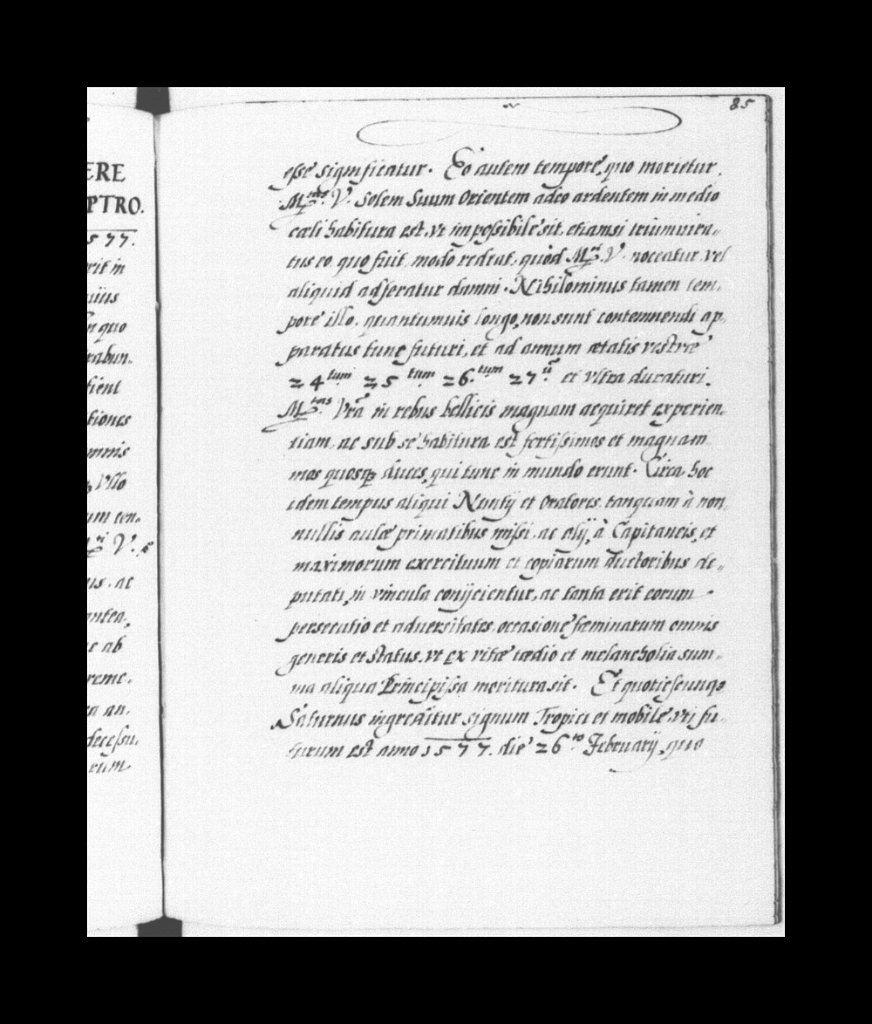 ERE
PTRO.
577.
rit in
quo
rabun.
fient
tiones
mnis
Vllo
um cen„
V.
us, ac
antea,
c ab
reme„
ra an„
decessu„
rum
85
esse significatur. Eo autem tempore, quo morietur
M.tas V. Solem Suum Orientem adeo ardentem in medio
cæli habitura est, vt impossibile sit, etiamsi triumuira„
tus eo quo fuit, modo redeat, quòd M.ti V. noceatur, vel
aliquid adferatur damni. Nihilominus tamen tem„
pore illo, quantumuis longo, non sunt contemnendi ap„
paratus tunc futuri, et ad annum ætatis vestræ
24.tum 25.tum 26.tum 27.u et vltra duraturi.
M.tas Vra in rebus bellicis magnam acquiret experien„
tiam, ac sub se habitura est fortissimos et magnani„
mos quosq duces, qui tunc in mundo erunt. Circa hoc
idem tempus aliqui Nuntij et Oratores, tanquam à non„
nullis aulæ primatibus missi, ac alij, à Capitaneis, et
maximorum exercituum et copiarum ductoribus de„
putati, in vincula conijcientur, ac tanta erit eorum
persecutio et aduersitates, occasione fæminarum omnis
generis et status, vt ex vitæ tædio et melancholia sum„
ma aliqua Principissa moritura sit. Et quotiescunqe
Saturnus ingreditur signum Tropici et mobile, vti fu„
turum est anno 1577. die 26.to February, quo